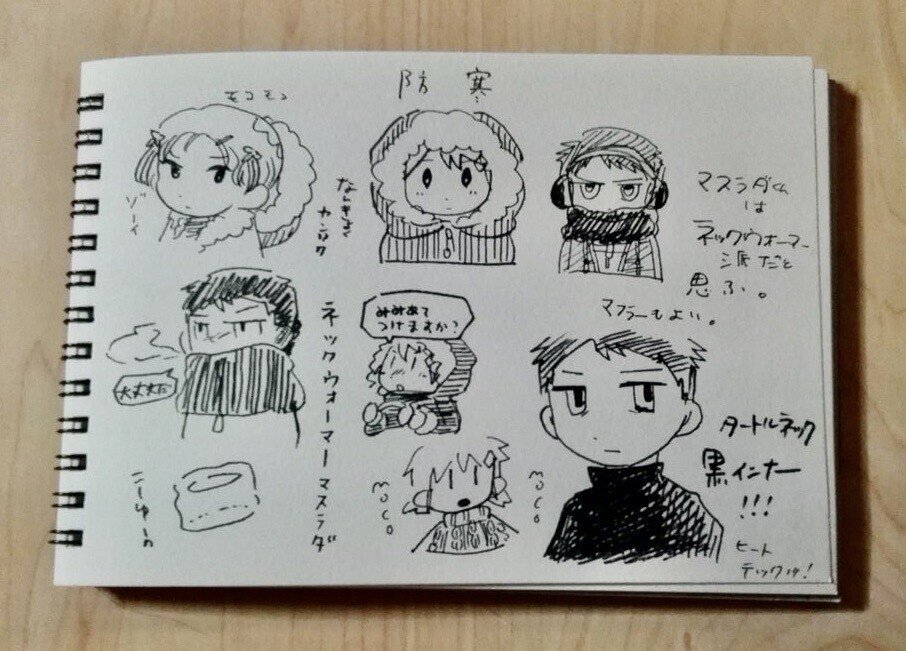 防寒
モコモコ
ゾーイ
マスラダくん
は
ネックウォーマー
派だと
思ふ。
マフラーもよい。
ネックウォーマーマスラダ
大丈夫だ
こーゆーの
みみあて
つけますか?
moco
moco
タートルネック
黒インナー
!!!
ヒート
テックか!